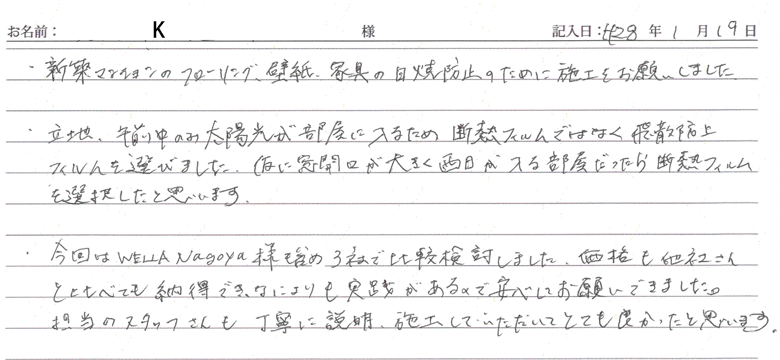 お名前: K 様 記入日:H28年1月19日
・新築マンションのフローリング、壁紙、家具の日焼防止のために施工をお願いしました
・立地、午前中のみ太陽光が部屋に入るため断熱フィルムではなく飛散防止
フィルムを選びました。仮に窓開口が大きく西日が入る部屋だったら断熱フィルム
を選択したと思います。
・今回はWELLA Nagoya様も含め3社で比較検討しました。価格も他社さん
とくらべても納得でき、なによりも実践があるので安心してお願いできました。
担当のスタッフさんも丁寧に説明、施工していただいてとても良かったと思います。